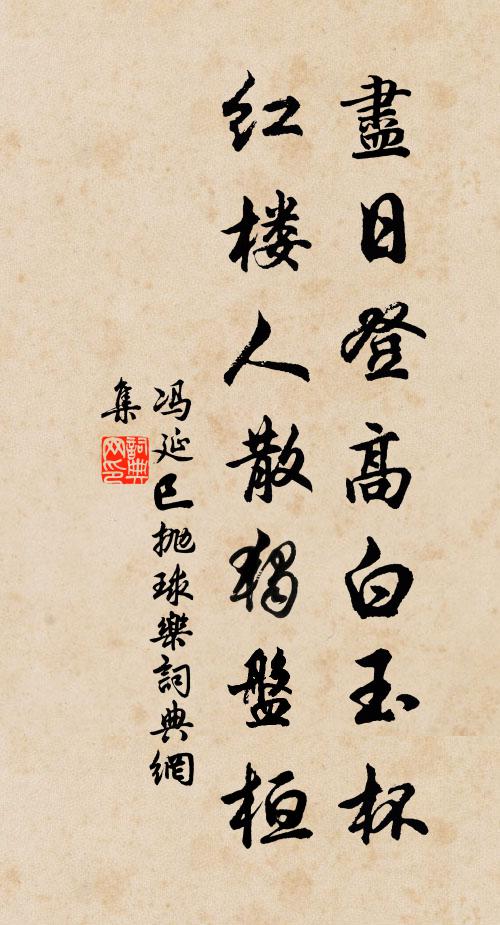 盡日登髙白玉杯
红楼人散獨盤桓
冯延巳抛球樂詞典網
集
詞典网印